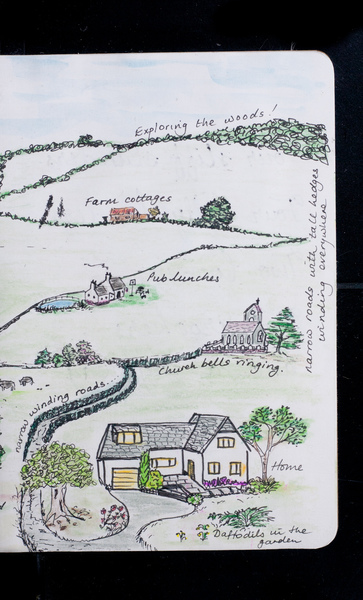 Exploring the woods!
narrow roads with tall hedges
winding everywhere
Farm cottages
Pub lunches
Church bells ringing.
narrow winding roads.
Home
Daffodils in the
garden